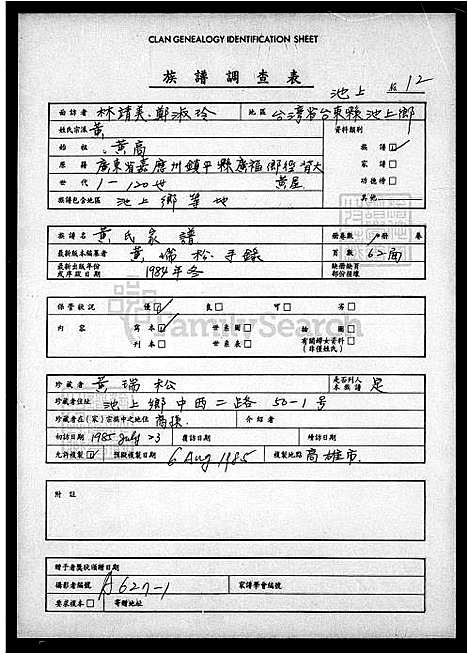 CLAN GENEALOGY IDENTIFICATION SHEET
族譜調查表
池上 12
面訪者 林靖美、鄭淑玲 地區 台灣省台東縣池上鄉
姓氏宗派 黃 資料類別
始祖 黃高 族譜
原籍 廣東省嘉應州鎮平縣廣福鄉徑背大黃屋 家譜
世代 1-120世 功德榜
族譜包含地區 池上鄉等地 其他
族譜名 黃氏家譜 冊卷數 1冊 卷
最新版本編纂者 黃瑞松手錄 頁數 62面
最新出版年份或序跋日期 1984年冬 缺冊缺頁部份推壞
保管狀況 優 良 可 劣
內容 寫本 世系圖 繪圖
刊本 世系表 有關婦女資料(非僅姓氏)
珍藏者 黃瑞松 是否列入本族譜 是
珍藏者住址 池上鄉中西二路50-1號
珍藏者在(家)宗族中之地位 裔孫 介紹者
初訪日期 1985 July 23 複訪日期 續訪日期
允許複製 預擬複製日期 6 Aug 1985 複製地點 高雄市
附註
贈予者獎狀頒贈日期
攝影者編號 A627-1 家譜學會編號
要求複本 寄贈地址
FamilySearch